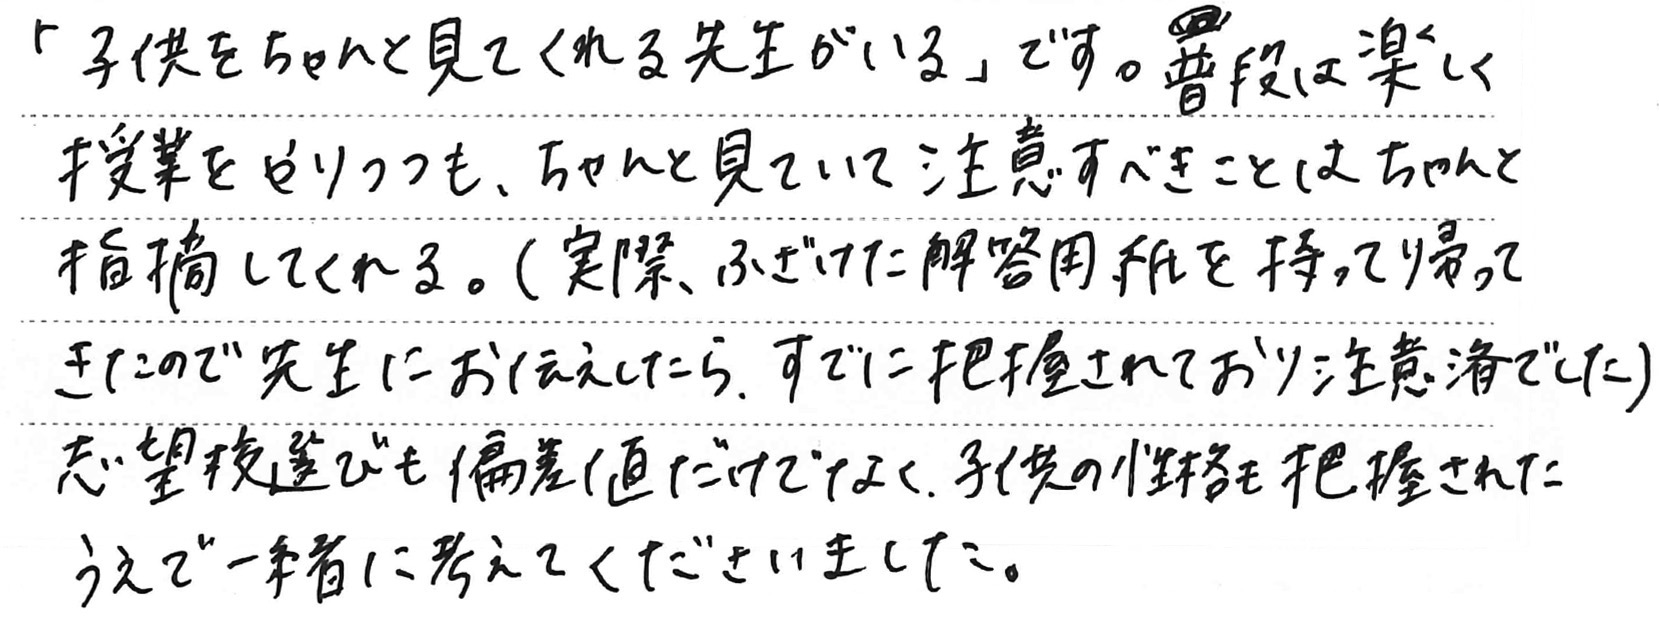 「子供をちゃんと見てくれる先生がいる」です。普段は楽しく
授業をやりつつも、ちゃんと見ていて注意すべきことはちゃんと
指摘してくれる。(実際、ふざけた解答用紙を持って帰って
きたので先生にお伝えしたら、すでに把握されており注意済でした)
志望校選びも偏差値だけでなく、子供の性格も把握された
うえで一緒に考えてくださいました。